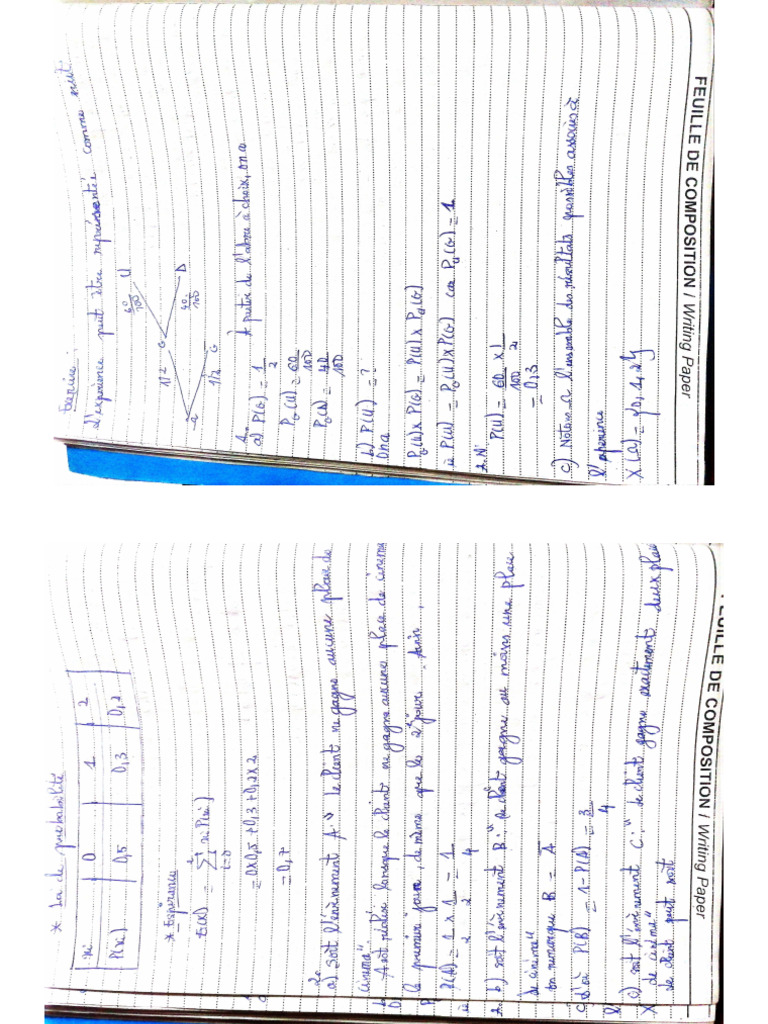 Exercice
L'expérience peut être représentée comme suit:
60/100 U
1/2 G
40/100 D
Ω
1/2 G
1.
À partir de l'abre à choix, on a
a) P(G) = 1/2
P_G(U) = 60/100
P_G(D) = 40/100
b) P(U) = ?
On a
P_G(U) x P(G) = P(U) x P_U(G)
P(U) = P_G(U) x P(G) car P_U(G) = 1
P(U) = 60/100 x 1/2
= 0,3
c) Notons Ω l'ensemble des résultats possibles associés à
l'expérience
X(Ω) = {0, 1, 2}
FEUILLE DE COMPOSITION / Writing Paper
* Loi de probabilité
xi 0 1 2
P(xi) 0,5 0,3 0,2
* Espérance
E(X) = Σ xi P(xi)
i=0
= 0x0,5 + 0,3 + 0,2x2
= 0,7
2.
a) Soit l'évènement A: " Le client ne gagne aucune place de
cinéma".
A est réalisé lorsque le client ne gagne aucune place de cinéma
le premier jour, de même que le 2e jour. Ainsi,
P(A) = 1/2 x 1/2 = 1/4
b) soit l'évènement B: " le client gagne au moins une place
de cinéma"
on remarque B = A̅
d'où P(B) = 1 - P(A) = 3/4
c) soit l'évènement C: " le client gagne exactement deux places
de cinéma"
Le client peut soit
FEUILLE DE COMPOSITION / Writing Paper